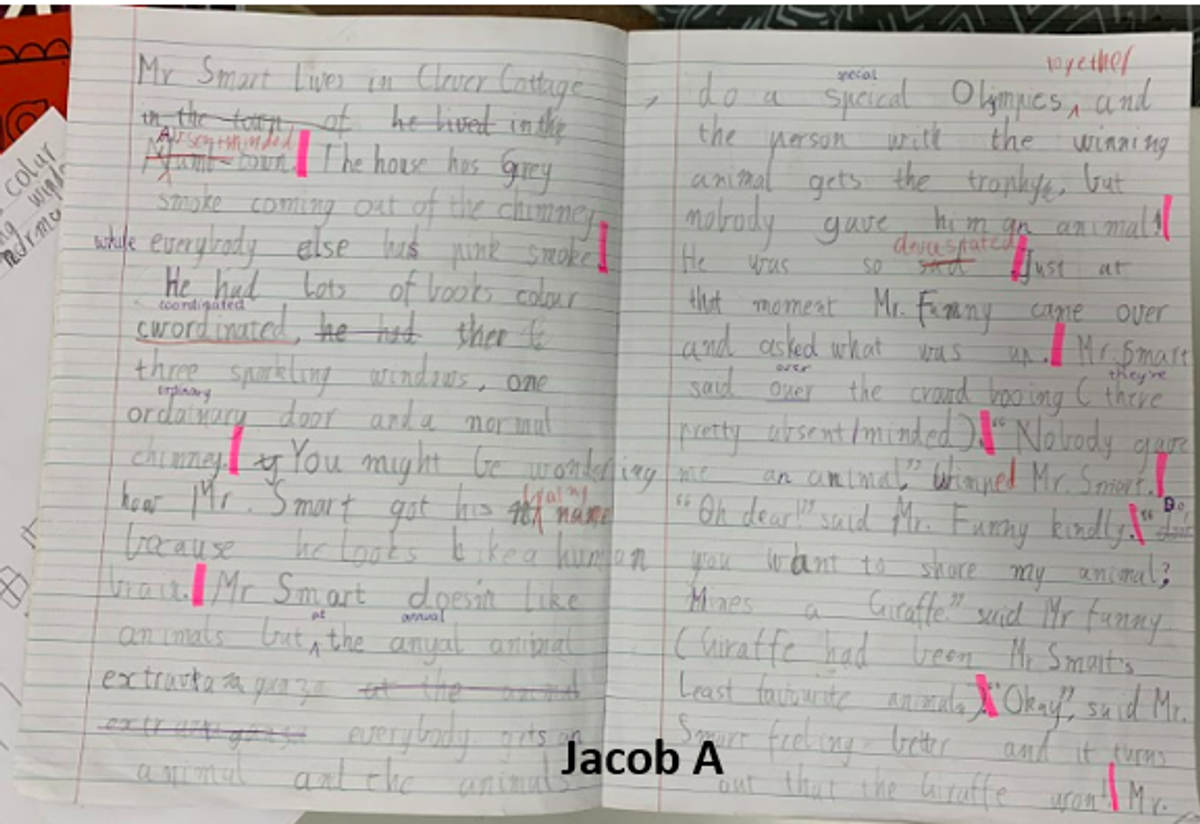 colur
ng wind
norma
Mr Smart Lives in Clever Cottage
in the town of he lived in the
Absent minded
town. The house has Grey
smoke coming out of the chimney
while everybody else has pink smoke.
He had Lots of books colour
coordinated
cwordinated, he had then
three sparkling windows, one
ordinary
ordainary door and a normal
chimney. You might be wondering
how Mr. Smart got his name
because he looks like a human
brain. Mr Smart doesin like
at annual
animals but the anyal animal
at the animal
everybody gets an
animal and the animals
together
special
do a speical Olympics, and
the person with the winning
animal gets the trophy, but
nobody gave him an animal!
devastated
He was so sad Just at
that moment Mr. Funny came over
and asked what was up. Mr. Smart
over they're
said over the crowd booing (there
pretty absent/minded). "Nobody gave
me an animal," Wimped Mr. Smart.
Do
"Oh dear!" said Mr. Funny kindly. "
you want to share my animal?
Mines a Giraffe." said Mr Funny
(Giraffe had been Mr Smart's
Least favourite animal.) "Okay", said Mr.
Smart feeling better and it turns
out that the Giraffe won! Mr.
Jacob A